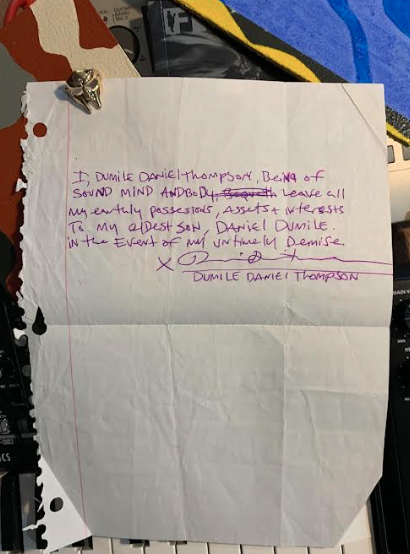 I, DUMILE DANIEL THOMPSON, BEiNG OF
SOUND MIND AND BODY, Leave all
my earthly possessions, Assets + interests
To my eldest SON, DANIEL DUMILE.
in the EVENT of my UNTimely Demise.
X
DUMILE DANIEL THOMPSON